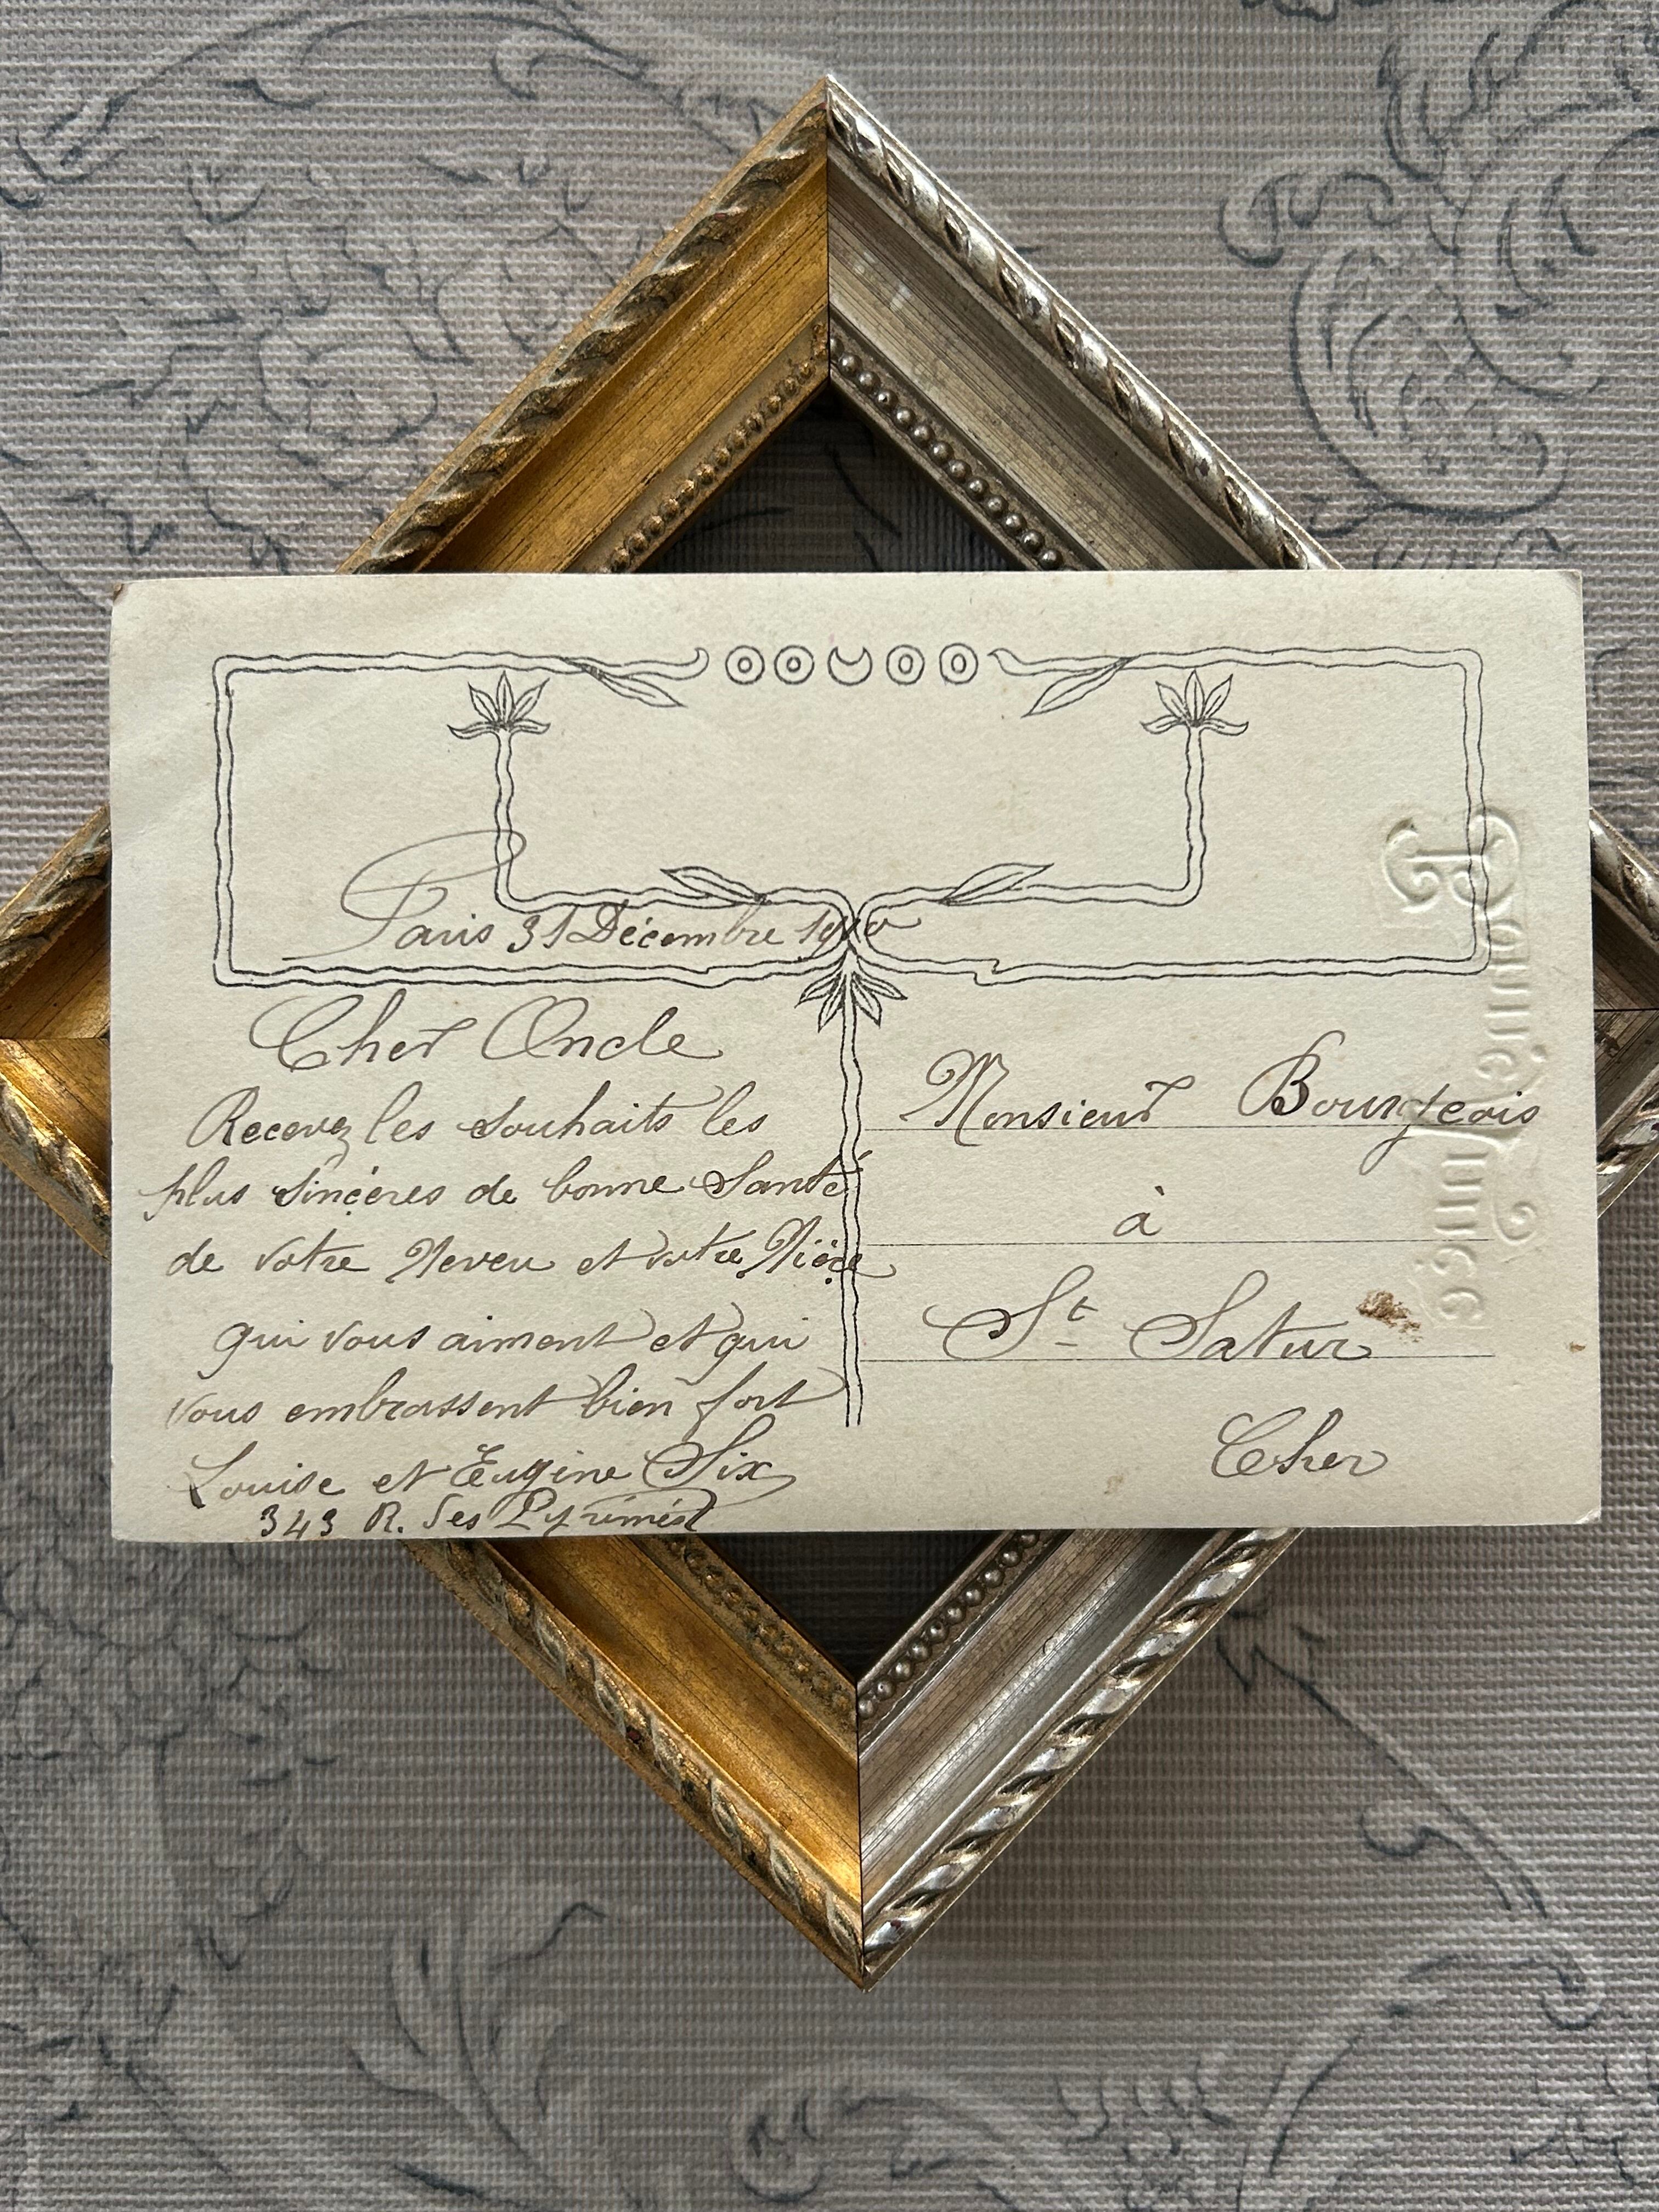 Paris 31 Décembre 1910
Cher Oncle
Recevez les souhaits les
plus sincères de bonne Santé
de votre Neveu et votre Nièce
qui vous aiment et qui
vous embrassent bien fort
Louise et Eugène Six
343 R. des
Monsieur Bourgeois
à
St Satur
Cher
Bonne Année